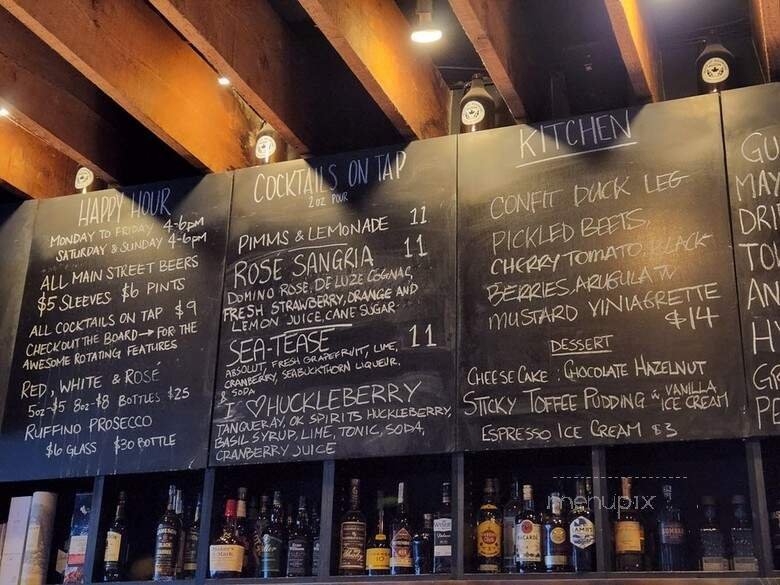 HAPPY HOUR
MONDAY TO FRIDAY 4-6PM
SATURDAY & SUNDAY 4-6PM
ALL MAIN STREET BEERS
$5 SLEEVES $6 PINTS
ALL COCKTAILS ON TAP $9
CHECK OUT THE BOARD → FOR THE
AWESOME ROTATING FEATURES
RED, WHITE & ROSÉ
5oz-$5 8oz-$8 BOTTLES $25
RUFFINO PROSECCO
$6 GLASS $30 BOTTLE
COCKTAILS ON TAP
2oz POUR
PIMMS & LEMONADE 11
ROSÉ SANGRIA 11
DOMINO ROSÉ, DELUZE COGNAC,
FRESH STRAWBERRY, ORANGE AND
LEMON JUICE, CANE SUGAR
SEA-TEASE 11
ABSOLUT, FRESH GRAPEFRUIT, LIME,
CRANBERRY, SEABUCKTHORN LIQUEUR,
& SODA
I ♡ HUCKLEBERRY
TANQUERAY, OK SPIRITS HUCKLEBERRY,
BASIL SYRUP, LIME, TONIC, SODA,
CRANBERRY JUICE
KITCHEN
CONFIT DUCK LEG
PICKLED BEETS,
CHERRY TOMATO, BLACK
BERRIES, ARUGULA W
MUSTARD VINIAGRETTE
$14
DESSERT
CHEESECAKE: CHOCOLATE HAZELNUT
STICKY TOFFEE PUDDING W VANILLA ICE CREAM
ESPRESSO ICE CREAM $3
GU
MAY
DRI
TOW
AN
H
GR
PE
BACARDI
menupix